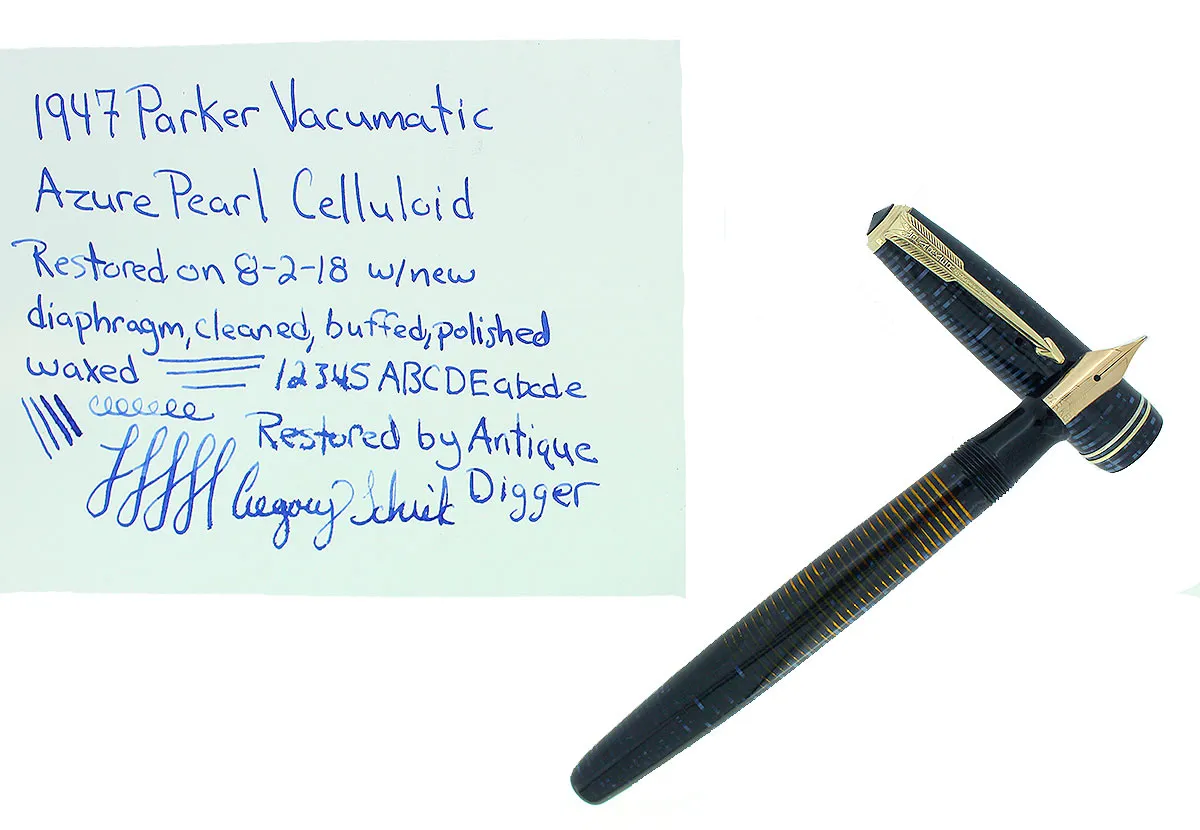 1947 Parker Vacumatic
Azure Pearl Celluloid
Restored on 8-2-18 w/new
diaphragm, cleaned, buffed, polished
waxed 12345 ABCDE abcde
Restored by Antique
Gregory Digger